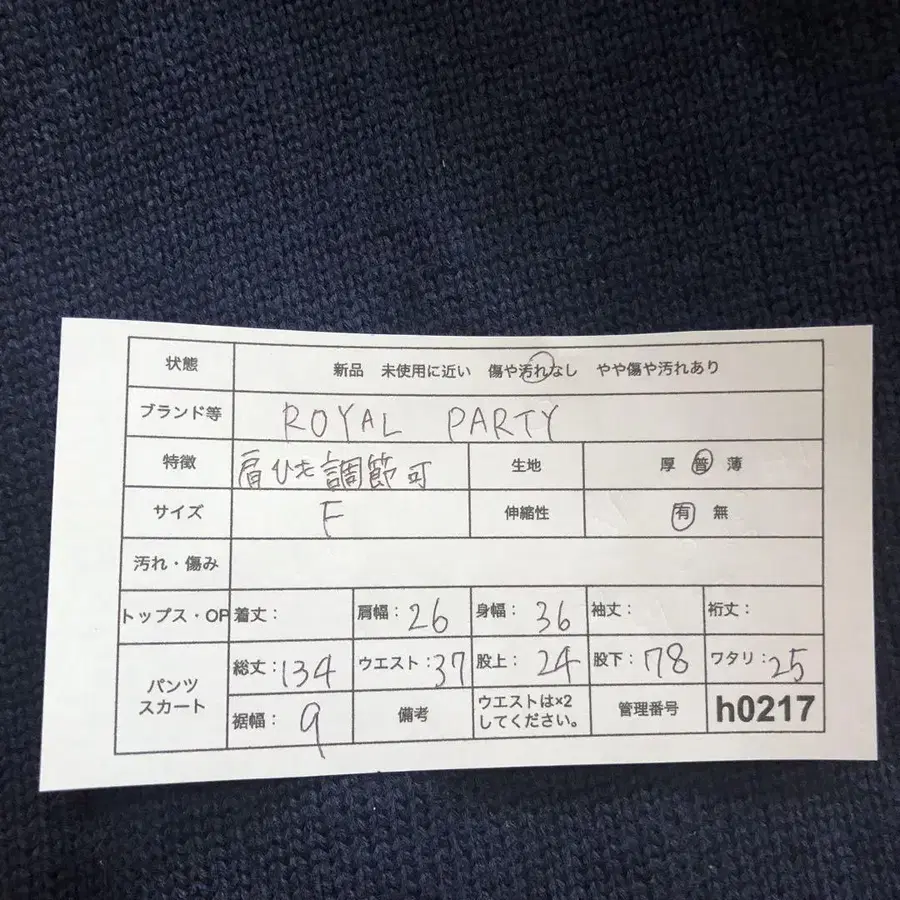 状態 新品 未使用に近い 傷や汚れなし やや傷や汚れあり
ブランド等 ROYAL PARTY
特徴 肩ひも調節可 生地 厚 普 薄
サイズ F 伸縮性 有 無
汚れ・傷み
トップス・OP 着丈: 肩幅: 26 身幅: 36 袖丈: 裄丈:
パンツ スカート 総丈: 134 ウエスト: 37 股上: 24 股下: 78 ワタリ: 25
裾幅: 9 備考 ウエストは×2 してください。 管理番号 h0217